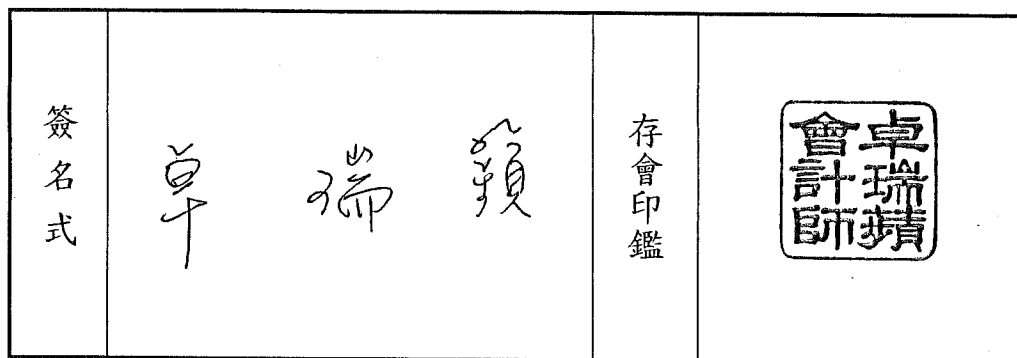 簽名式
卓瑞
存會印鑑
卓瑞
會計師